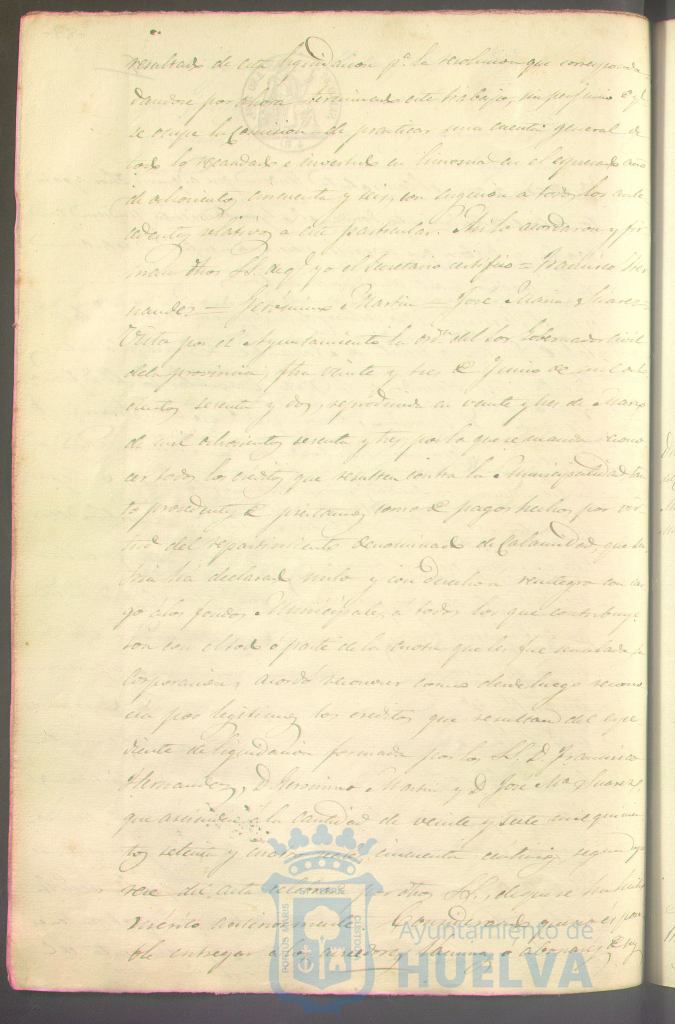 resultado de esta liquidacion pª la resolucion que corresponda
dandose por ahora terminado este trabajo, sin perjuicio de q.
se ocupe la Comision de practicar una cuenta general de
todo lo recaudado e invertido en limosna en el espresado año
de ochocientos cincuenta y seis, con sugecion a todos los ante
cedentes relativos a este particular. Asi lo acordaron y fir
man dhos SS. de q. yo el Secretario certifico = Francisco Her
nandez = Gerónimo Martin = José Maria Suarez =
Vista por el Ayuntamiento la orn. del Sor. Gobernador Civil
de la provincia, fha veinte y tres de Junio de mil ocho
cientos sesenta y dos, reproducida en veinte y tres de Marzo
de mil ochocientos sesenta y tres por lo que se manda recono
cer todos los creditos que resulten contra la Municipalidad tan
to procedentes de prestamos como de pagos hechos por vir
tud del repartimiento denominado de Calamidad, que
ha declarado nulo y con derecho a reintegro con car
go a los fondos Municipales, á todos los que contribuye
ron con el todo ó parte de la cuota que les fue señalada, la
Corporacion, acordó reconocer como desde luego recono
cia por legitimos los creditos que resultan del espe
diente de liquidacion formado por los SS. D. Francisco
Hernandez, D. Geronimo Martin y D. José Mª Suarez
que asciende á la cantidad de veinte y siete mil quinien
tos setenta y cuatro cincuenta centimos segun apa
rece del acta celebrada por dhos SS. de que se ha hecho
mérito anteriormente. Considerando que no es posi
ble entregar a los acreedores laminas o abonares de
PORTUS MARIS
CUSTODIA
Ayuntamiento de
HUELVA